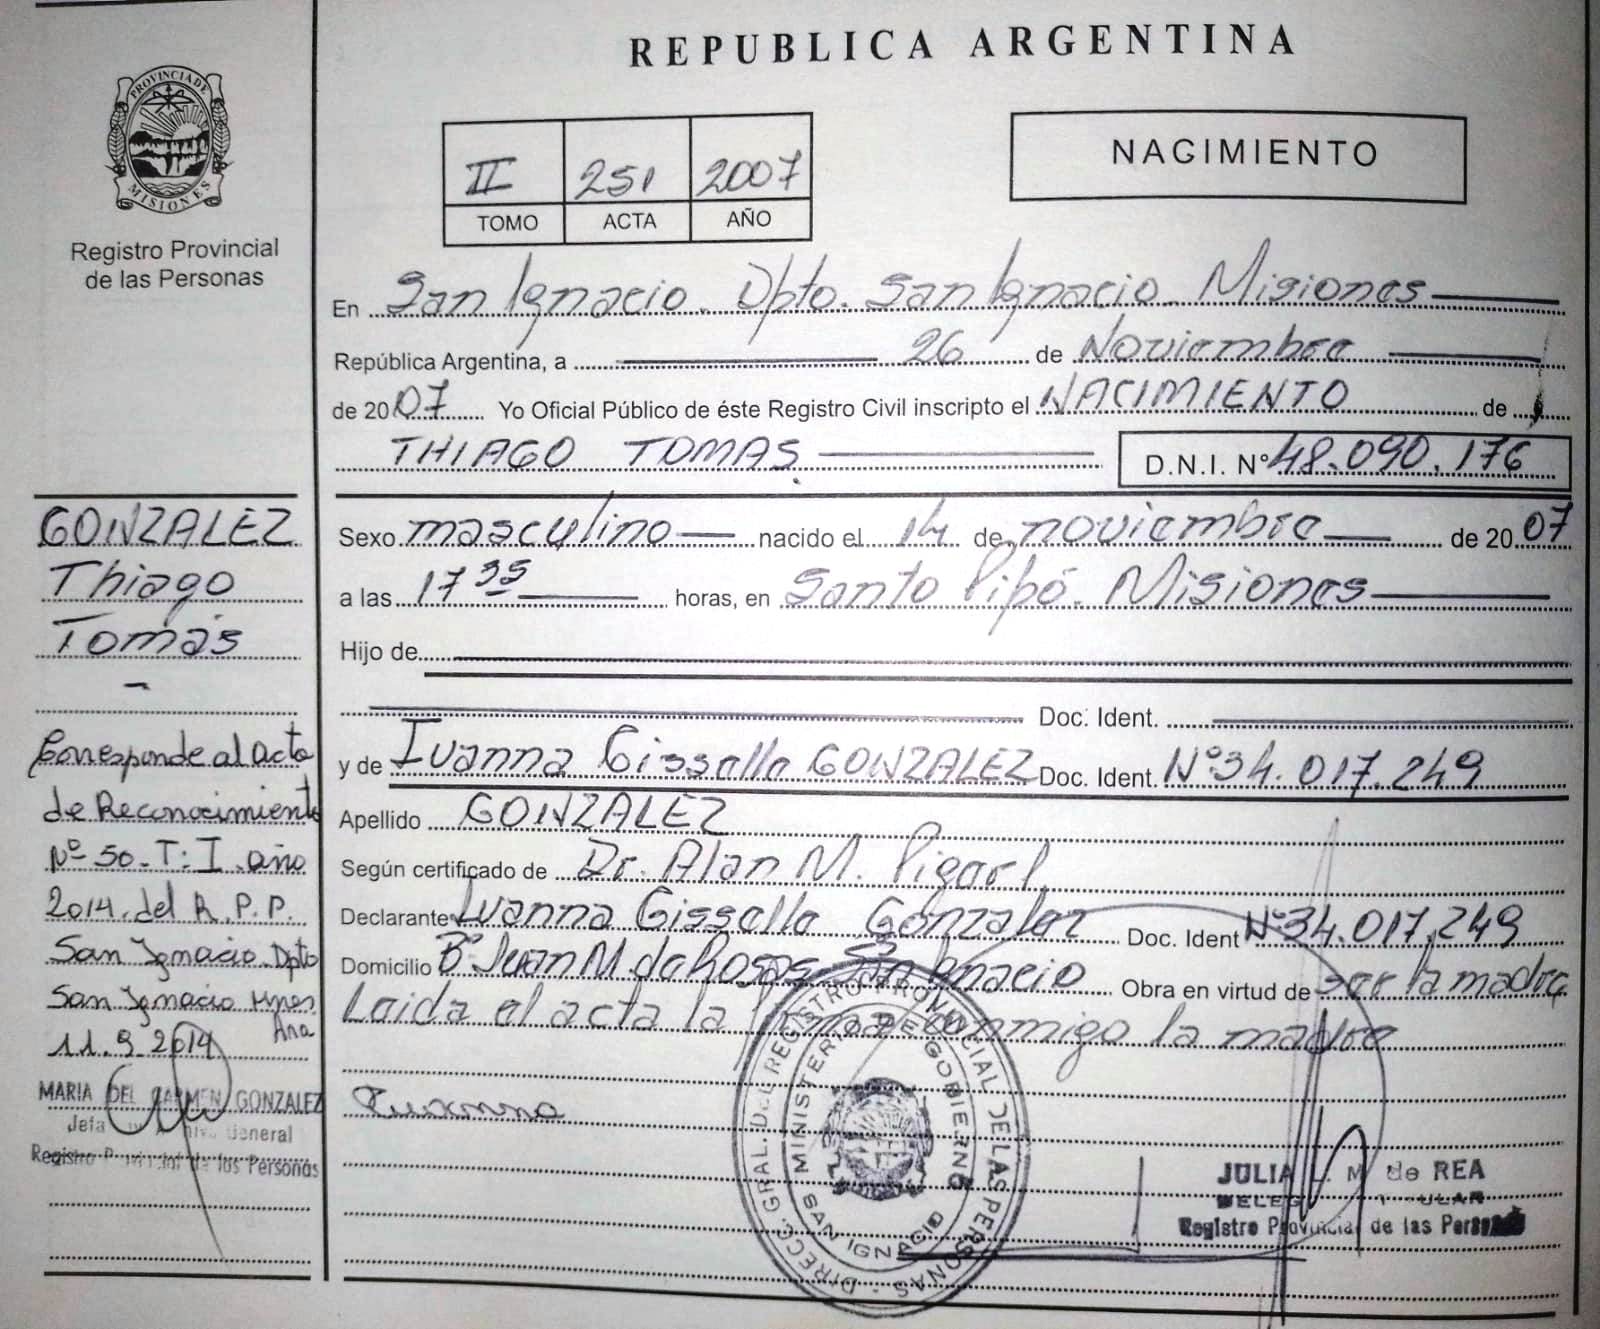 REPUBLICA ARGENTINA
PROVINCIA DE
MISIONES
Registro Provincial
de las Personas
II 251 2007
TOMO ACTA AÑO
NACIMIENTO
En San Ignacio. Dpto. San Ignacio. Misiones
República Argentina, a 26 de Noviembre
de 2007 Yo Oficial Público de éste Registro Civil inscripto el NACIMIENTO de
THIAGO TOMAS D.N.I. Nº 48.090.176
GONZALEZ
Thiago
Tomás
Sexo masculino nacido el 14 de noviembre de 2007
a las 17 35 horas, en Santo Pipó. Misiones
Hijo de
Doc. Ident.
y de Ivanna Gissella GONZALEZ Doc. Ident. Nº 34.017.249
Apellido GONZALEZ
Según certificado de Dr. Alan M.
Declarante Ivanna Gissella Gonzalez Doc. Ident Nº 34.017.249
Domicilio Bº Juan M. de Rosas San Ignacio Obra en virtud de ser la madre
Leida el acta la firma conmigo la madre
Corresponde al acta
de Reconocimiento
Nº 50-T: I. año
2014. del R.P.P.
San Ignacio. Dpto
San Ignacio Mnes
11.9.2014
MARIA DEL CARMEN GONZALEZ
Jefa General
Registro Provincial de las Personas
DIRECC. GRAL. DEL REGISTRO PROVINCIAL DE LAS PERSONAS
MINISTERIO DE GOBIERNO
SAN IGNACIO
JULIA L. M. de REA
Registro Provincial de las Personas